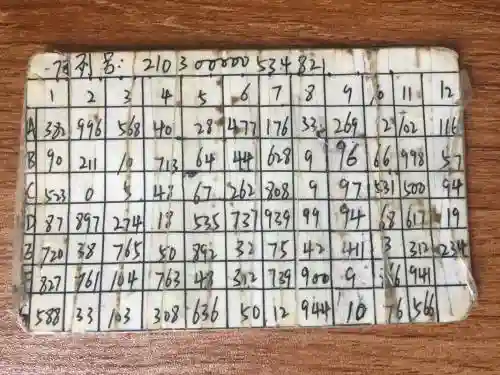 序列号: 210300000534821
1 2 3 4 5 6 7 8 9 10 11 12
A 996 568 40 28 477 176 33 269 2 102 116
B 90 211 10 713 64 44 628 9 96 66 998 57
C 523 0 5 48 67 262 808 9 97 531 500 94
D 87 897 274 18 535 737 939 99 94 68 617 19
E 720 38 765 50 892 32 75 42 41 3 312 234
827 761 104 763 48 312 739 900 9 941
588 33 103 308 636 50 12 944 10 76 566